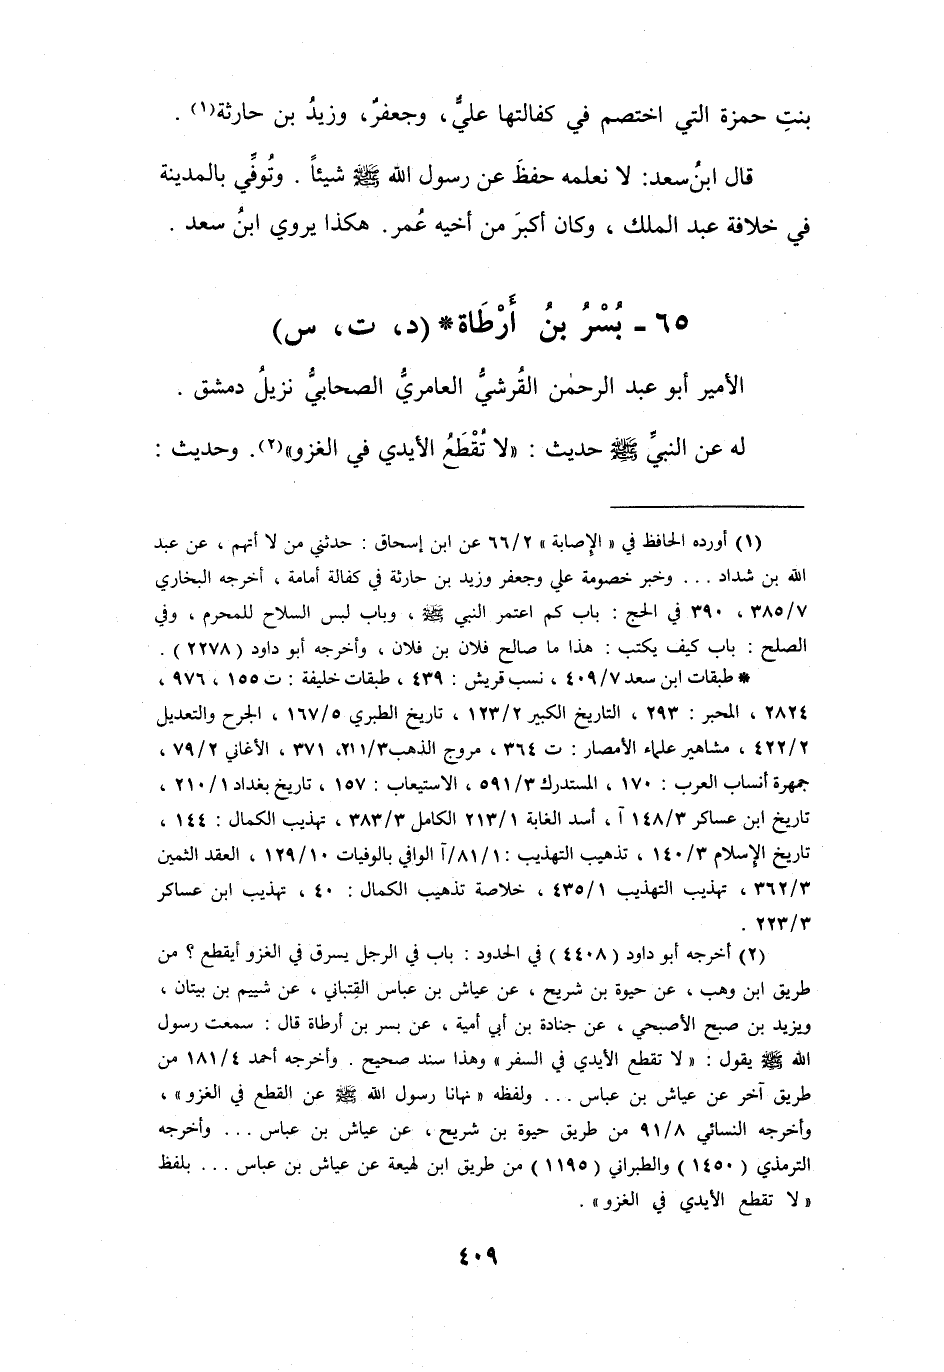 بنتِ حمزة التي اختصم في كفالتها عليٌّ، وجعفرٌ، وزيدُ بن حارثة(١) .
قال ابنُ سعد: لا نعلمه حفظَ عن رسول الله ﷺ شيئاً . وتُوفِّي بالمدينة
في خلافة عبد الملك ، وكان أكبرَ من أخيه عُمر. هكذا يروي ابنُ سعد .
٦٥ - بُسْرُ بنُ أَرْطَاة* (د، ت، س)
الأمير أبو عبد الرحمٰن القُرشيُّ العامريُّ الصحابيُّ نزيلُ دمشق .
له عن النبيِّ ﷺ حديث : «لا تُقْطَعُ الأيدي في الغزو»(٢). وحديث :
(١) أورده الحافظ في « الإصابة » ٦٦/٢ عن ابن إسحاق : حدثني من لا أتهم ، عن عبد
الله بن شداد ... وخبر خصومة علي وجعفر وزيد بن حارثة في كفالة أمامة ، أخرجه البخاري
٣٨٥/٧ ، ٣٩٠ في الحج : باب كم اعتمر النبي ﷺ ، وباب لبس السلاح للمحرم ، وفي
الصلح : باب كيف يكتب : هذا ما صالح فلان بن فلان ، وأخرجه أبو داود ( ٢٢٧٨ ) .
* طبقات ابن سعد ٤٠٩/٧ ، نسب قريش : ٤٣٩ ، طبقات خليفة : ت ١٥٥ ، ٩٧٦ ،
٢٨٢٤ ، المحبر : ٢٩٣ ، التاريخ الكبير ١٢٣/٢ ، تاريخ الطبري ١٦٧/٥ ، الجرح والتعديل
٤٢٢/٢ ، مشاهير علماء الأمصار : ت ٣٦٤ ، مروج الذهب٢١١/٣، ٣٧١ ، الأغاني ٧٩/٢ ،
جمهرة أنساب العرب : ١٧٠ ، المستدرك ٥٩١/٣ ، الاستيعاب : ١٥٧ ، تاريخ بغداد ٢١٠/١ ،
تاريخ ابن عساكر ١٤٨/٣ آ ، أسد الغابة ٢١٣/١ الكامل ٣٨٣/٣ ، تهذيب الكمال : ١٤٤ ،
تاريخ الإسلام ١٤٠/٣ ، تذهيب التهذيب :٨١/١/آ الوافي بالوفيات ١٢٩/١٠ ، العقد الثمين
٣٦٢/٣ ، تهذيب التهذيب ٤٣٥/١ ، خلاصة تذهيب الكمال : ٤٠ ، تهذيب ابن عساكر
٢٢٣/٣ .
(٢) أخرجه أبو داود ( ٤٤٠٨ ) في الحدود : باب في الرجل يسرق في الغزو أيقطع ؟ من
طريق ابن وهب ، عن حيوة بن شريح ، عن عياش بن عباس القِتباني ، عن شييم بن بيتان ،
ويزيد بن صبح الأصبحي ، عن جنادة بن أبي أمية ، عن بسر بن أرطاة قال : سمعت رسول
الله ﷺ يقول : « لا تقطع الأيدي في السفر » وهذا سند صحيح . وأخرجه أحمد ١٨١/٤ من
طريق آخر عن عياش بن عباس ... ولفظه «نهانا رسول الله ﷺ عن القطع في الغزو» ،
وأخرجه النسائي ٩١/٨ من طريق حيوة بن شريح ، عن عياش بن عباس ... وأخرجه
الترمذي ( ١٤٥٠ ) والطبراني ( ١١٩٥ ) من طريق ابن لهيعة عن عياش بن عباس ... بلفظ
« لا تقطع الأيدي في الغزو» .
٤٠٩